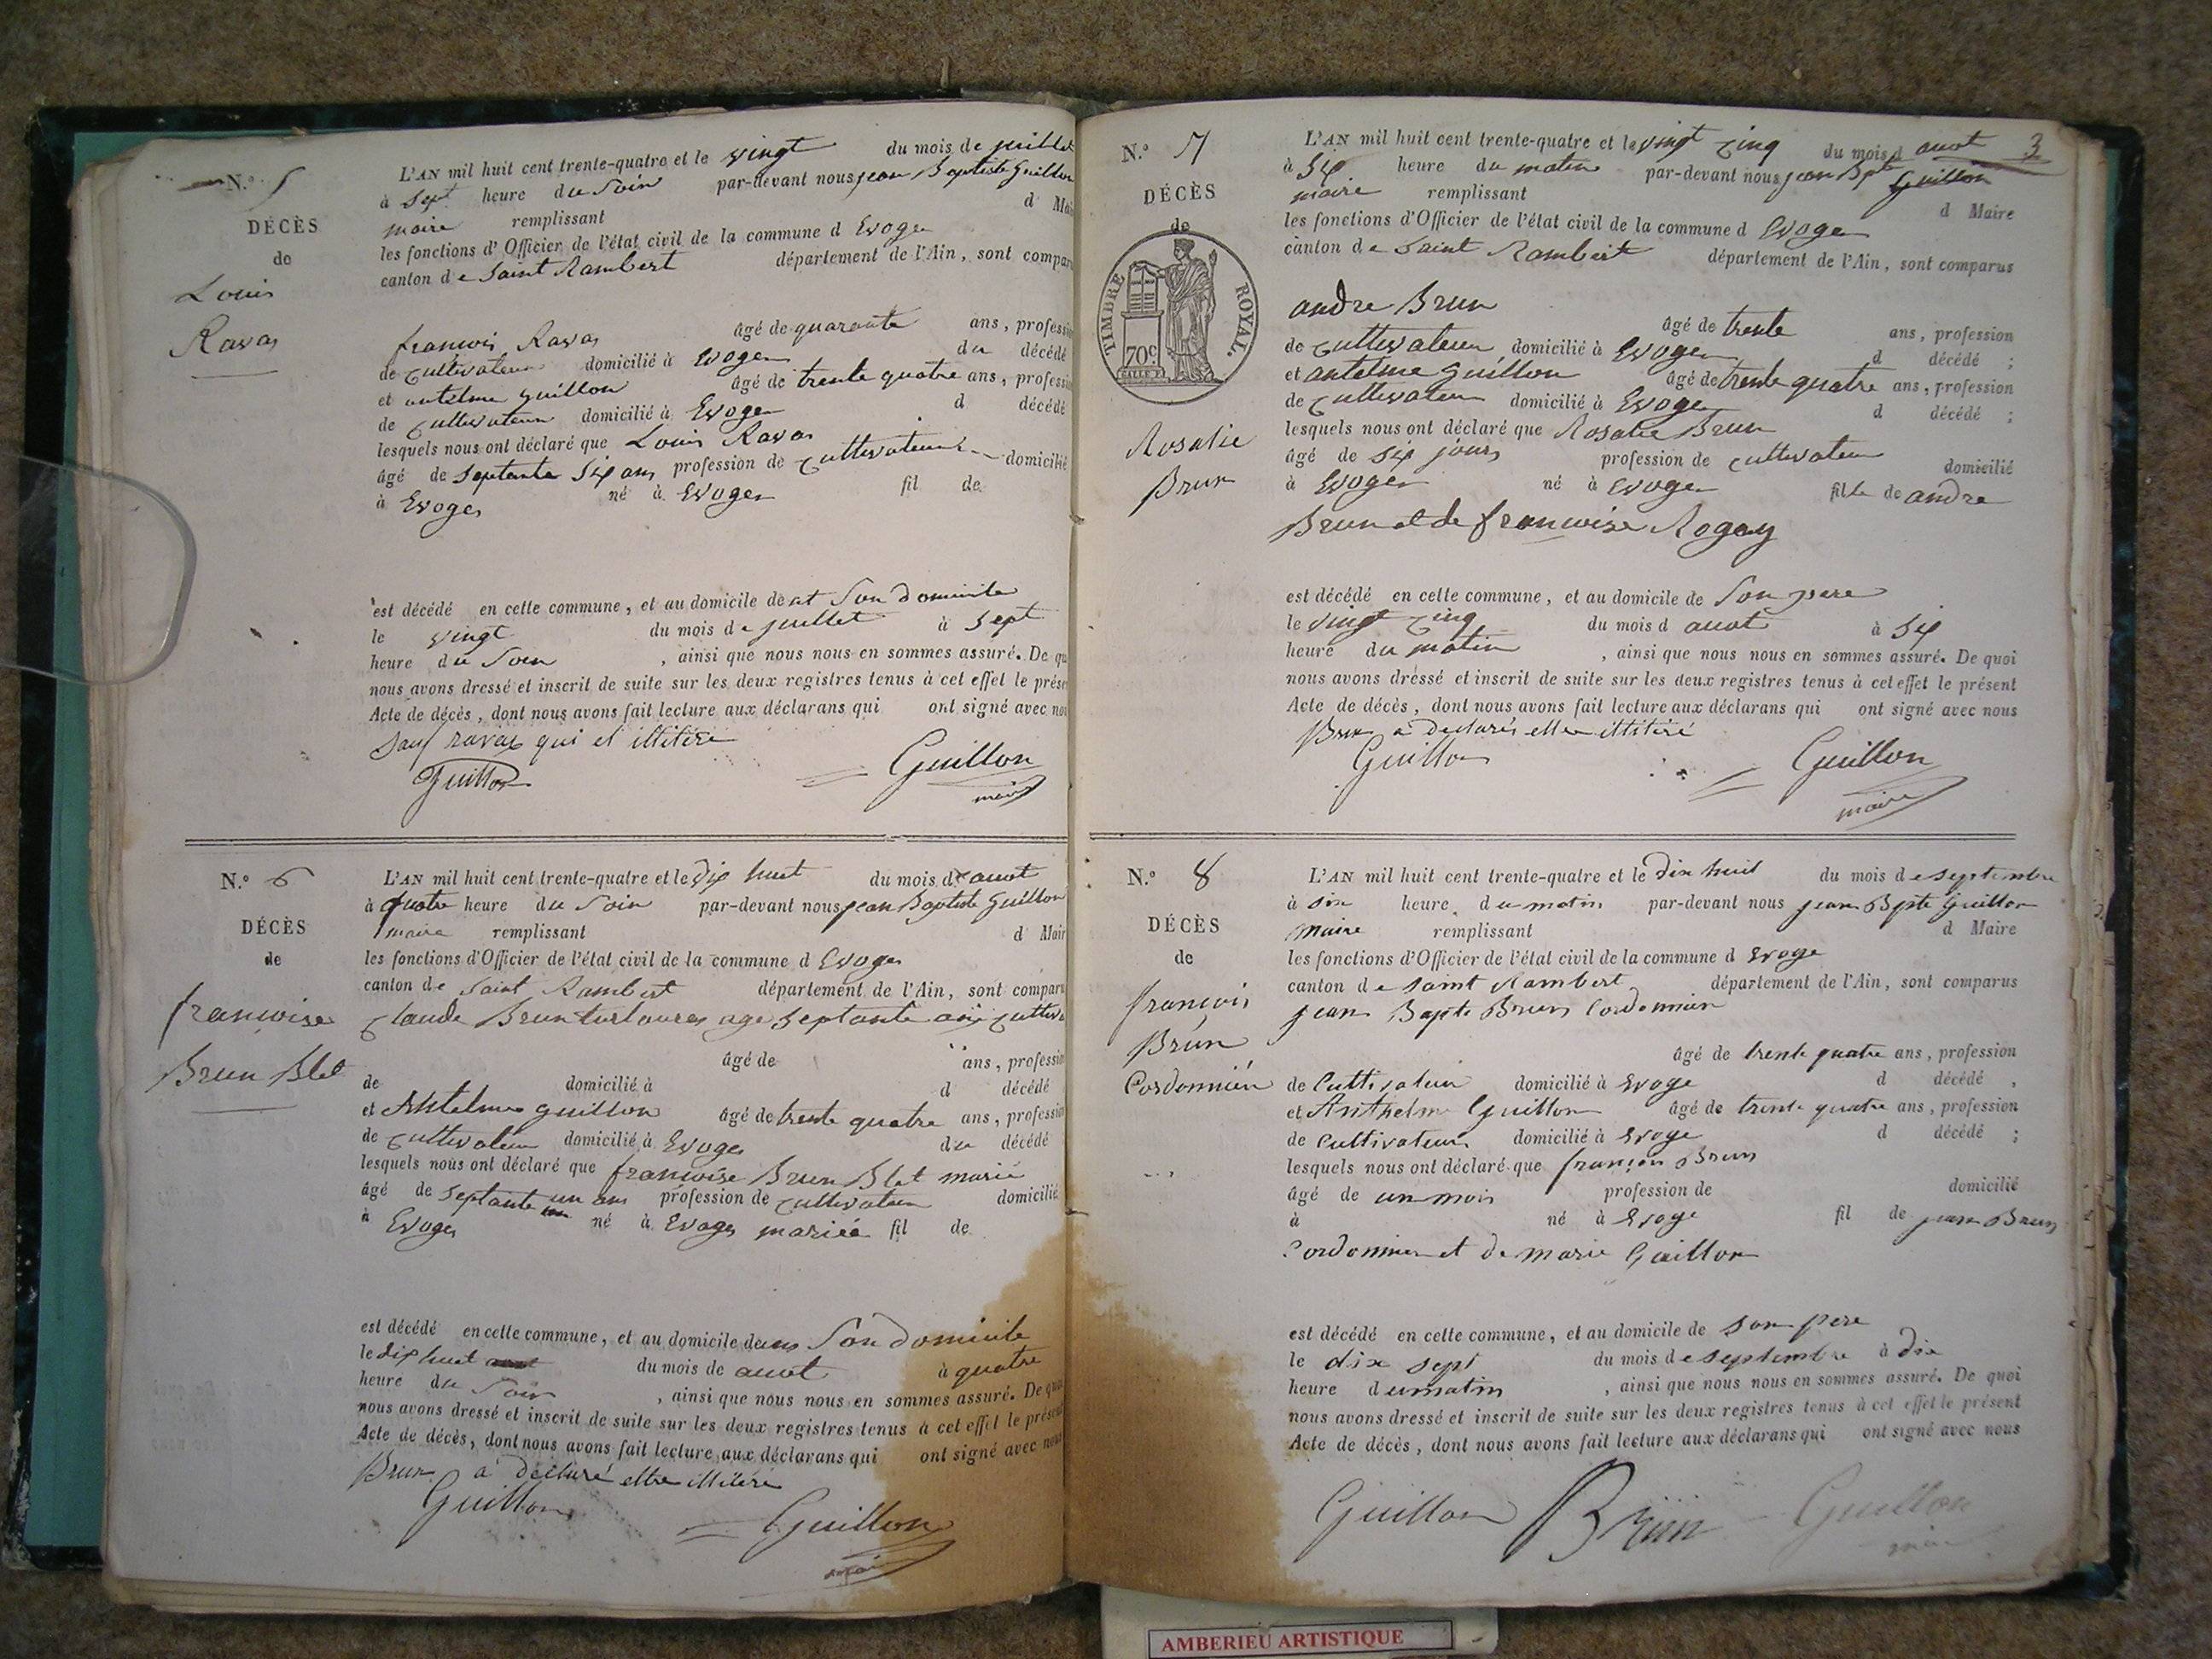 N.° 5
DÉCÈS
de
Louis
Ravas
L'AN mil huit cent trente-quatre et le vingt du mois de juillet
à sept heure du soir par-devant nous jean Baptiste Guillon
maire remplissant d Mai
les fonctions d'Officier de l'état civil de la commune d Evoges
canton de Saint Rambert département de l'Ain, sont compar
francois Ravas âgé de quarante ans, professi
de cultivateur domicilié à Evoges du décédé
et antelme guillon âgé de trente quatre ans, professi
de cultivateur domicilié à Evoges d décédé
lesquels nous ont déclaré que Louis Ravas
âgé de septante six ans profession de cultivateur domicilié
à Evoges né à Evoges fil de
est décédé en cette commune, et au domicile de at son domicile
le vingt du mois de juillet à sept
heure du soir, ainsi que nous nous en sommes assuré. De qu
nous avons dressé et inscrit de suite sur les deux registres tenus à cet effet le prése
Acte de décès, dont nous avons fait lecture aux déclarans qui ont signé avec no
sauf ravas qui et illitére
Guillon Guillon
maire
N.° 6
DÉCÈS
de
francoise
Brun Blet
L'AN mil huit cent trente-quatre et le dix huit du mois d auot
à quatre heure du soir par-devant nous jean Baptiste Guillon
maire remplissant d Mair
les fonctions d'Officier de l'état civil de la commune d Evoges
canton de Saint Rambert département de l'Ain, sont compar
claude Brun age septante cultiva
âgé de ans, professi
de domicilié à d décédé
et Antelme guillon âgé de trente quatre ans, professi
de cultivateur domicilié à Evoges du décédé
lesquels nous ont déclaré que francoise Brun Blet marié
âgé de septante un ans profession de cultivateur domicilié
à Evoges né à Evoges mariée fil de
est décédé en cette commune, et au domicile dans son domicile
le dix huit du mois de auot à quatre
heure du soir, ainsi que nous nous en sommes assuré. De quoi
nous avons dressé et inscrit de suite sur les deux registres tenus à cet effet le présent
Acte de décès, dont nous avons fait lecture aux déclarans qui ont signé avec nous
Brun a déclaré ettre illitére
Guillon Guillon
maire
3
N.° 7
DÉCÈS
de
TIMBRE ROYAL.
70c.
Rosalie
Brun
L'AN mil huit cent trente-quatre et le vingt cinq du mois d auot
à six heure du matin par-devant nous jean Bpte Guillon
maire remplissant d Maire
les fonctions d'Officier de l'état civil de la commune d Evoges
canton de Saint Rambert département de l'Ain, sont comparus
andre Brun
âgé de trente ans, profession
de cultivateur domicilié à Evoges d décédé ;
et antelme Guillon âgé de trente quatre ans, profession
de cultivateur domicilié à Evoges d décédé ;
lesquels nous ont déclaré que Rosalie Brun
âgé de six jours profession de cultivateur domicilié
à Evoges né à Evoges fille de andre
Brun et de francoise Rogay
est décédé en cette commune, et au domicile de son pere
le vingt cinq du mois d auot à six
heure du matin, ainsi que nous nous en sommes assuré. De quoi
nous avons dressé et inscrit de suite sur les deux registres tenus à cet effet le présent
Acte de décès, dont nous avons fait lecture aux déclarans qui ont signé avec nous
Brun a declarés ettre illitiré
Guillon Guillon
maire
N.° 8
DÉCÈS
de
francois
Brun
Cordonnier
L'AN mil huit cent trente-quatre et le dix huit du mois de septembre
à dix heure du matin par-devant nous jean Bpte Guillon
maire remplissant d Maire
les fonctions d'Officier de l'état civil de la commune d Evoge
canton de saint Rambert département de l'Ain, sont comparus
jean Bapte Brun Cordonnier
âgé de trente quatre ans, profession
de Cultivateur domicilié à Evoge d décédé ,
et Anthelme Guillon âgé de trente quatre ans, profession
de Cultivateur domicilié à Evoge d décédé ;
lesquels nous ont déclaré que françois Brun
âgé de un mois profession de domicilié
à né à Evoge fil de jean Brun
Cordonnier et de marie Guillon
est décédé en cette commune, et au domicile de son pere
le dix sept du mois de septembre à dix
heure du matin, ainsi que nous nous en sommes assuré. De quoi
nous avons dressé et inscrit de suite sur les deux registres tenus à cet effet le présent
Acte de décès, dont nous avons fait lecture aux déclarans qui ont signé avec nous
Guillon Brun Guillon
maire
AMBERIEU ARTISTIQUE